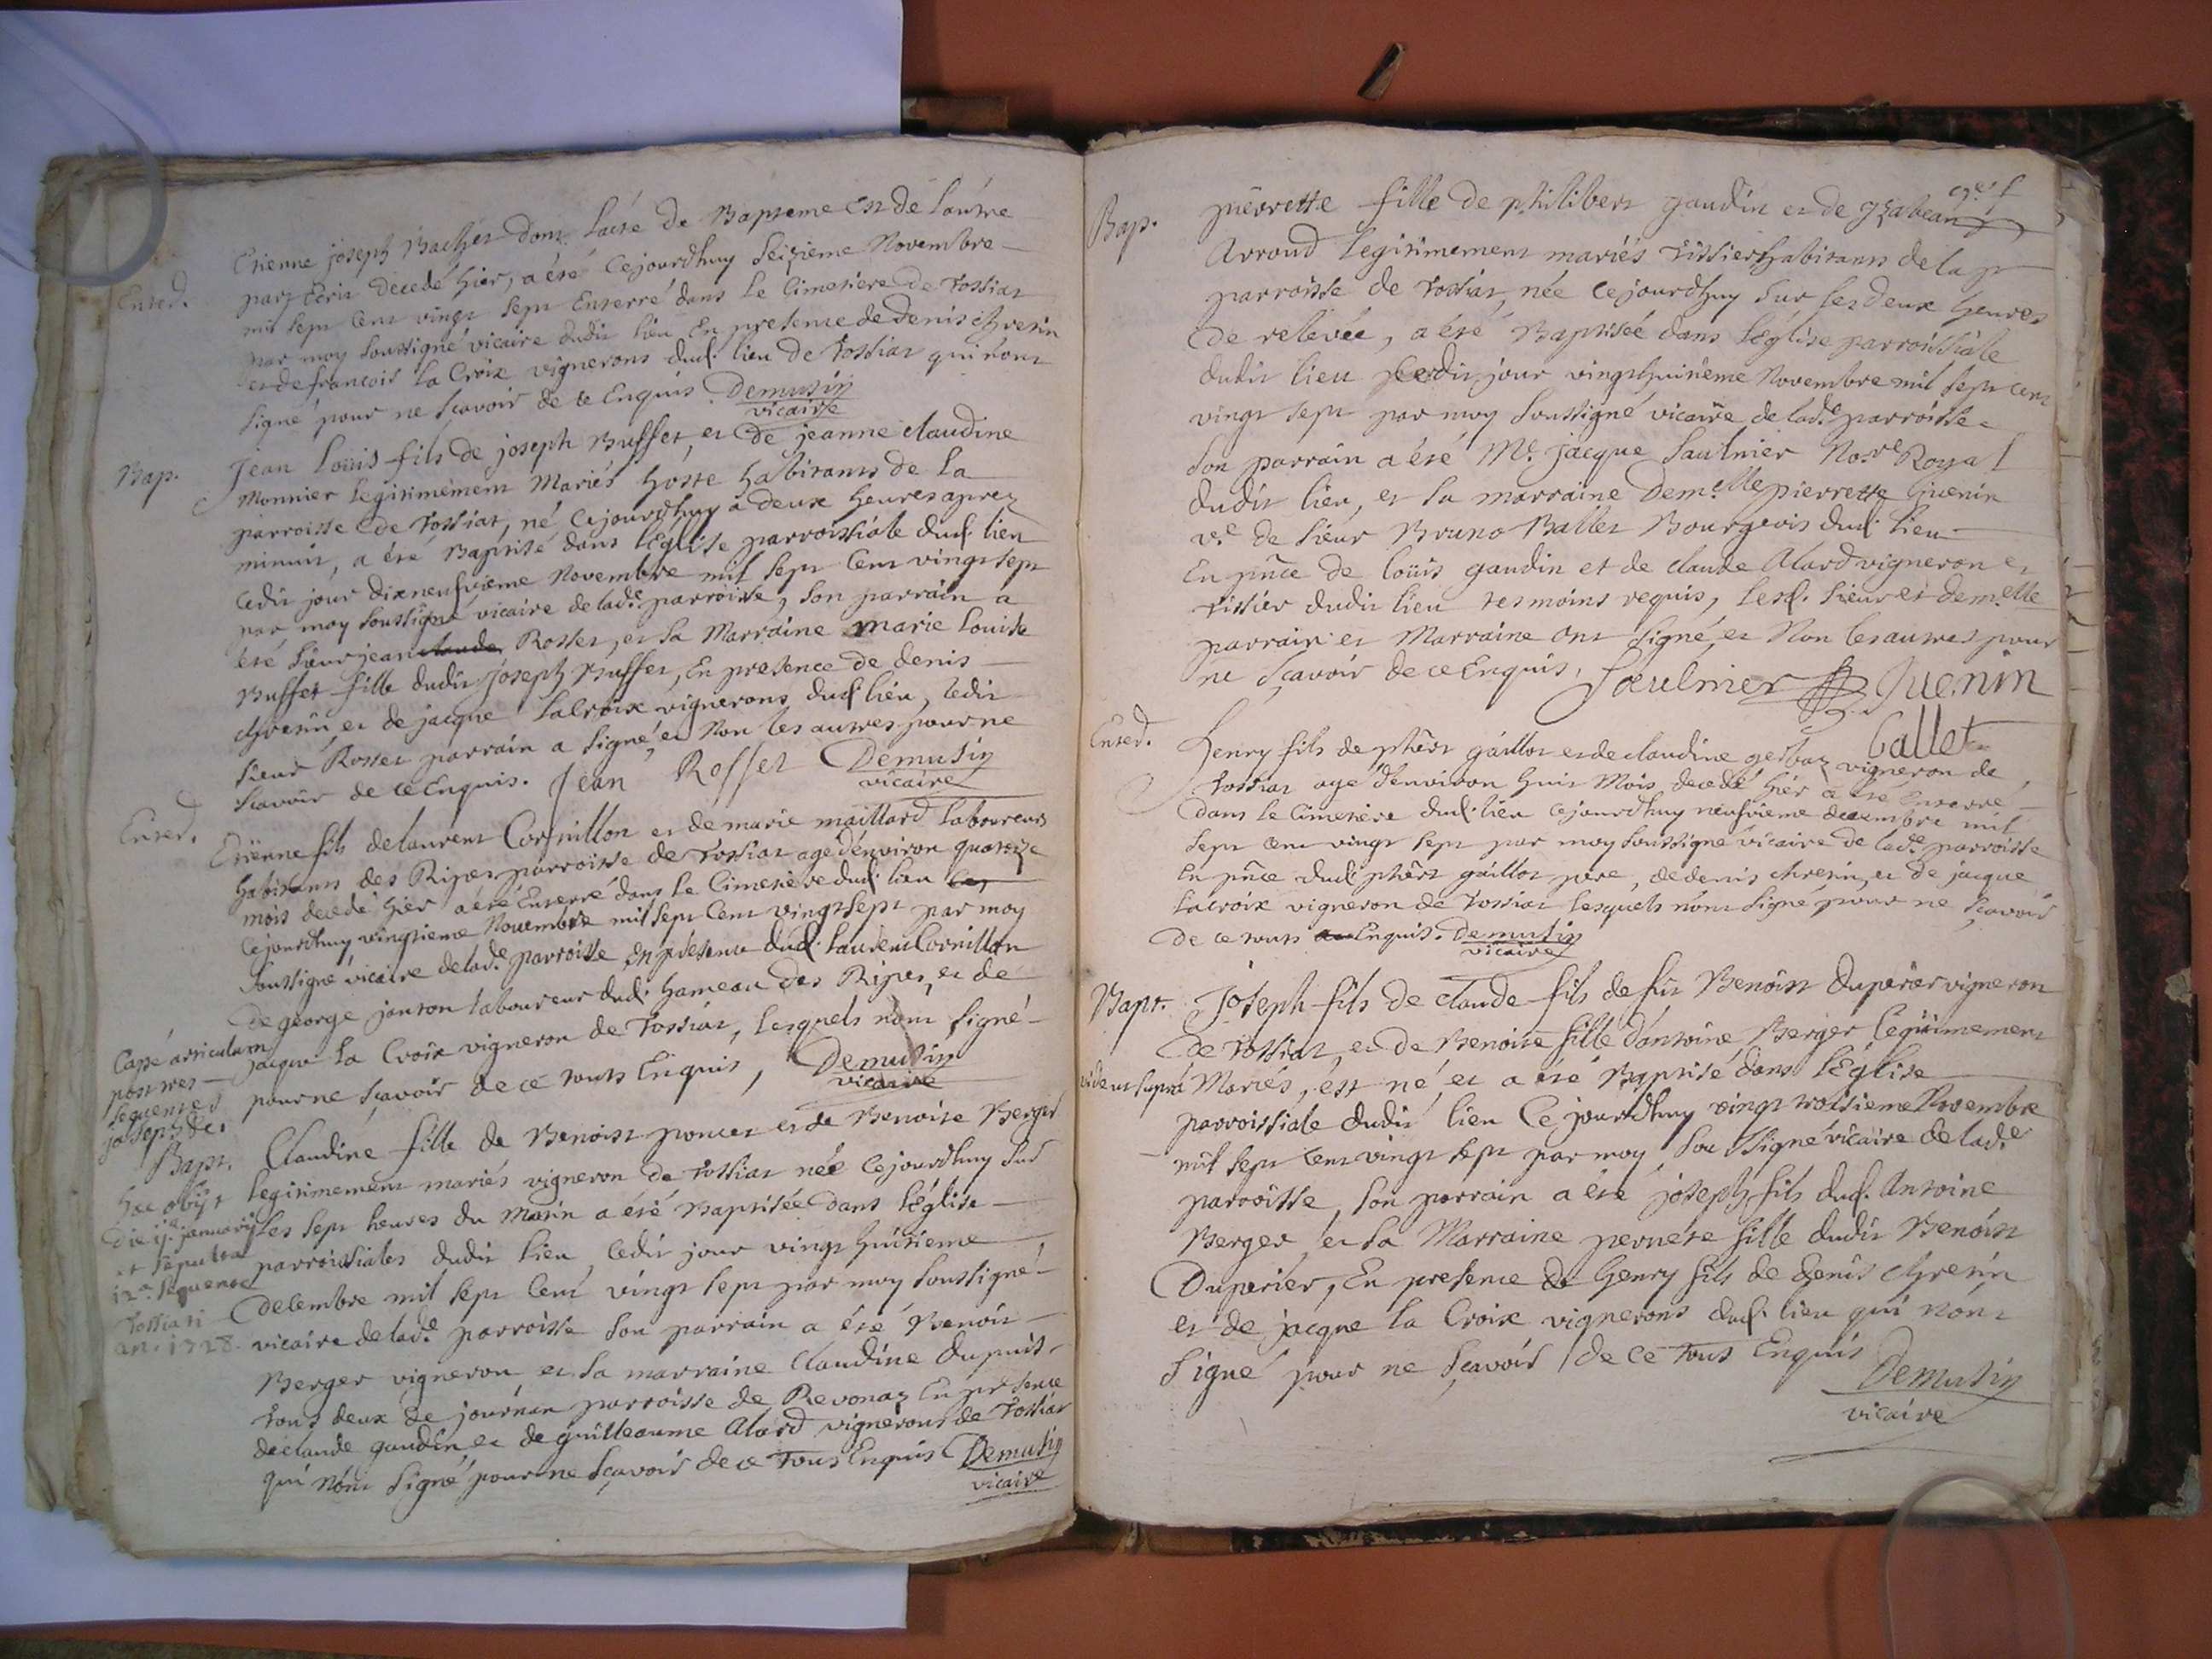 Etienne joseph Ballet dont lacte de Bapteme Est de lautre
Enterr.
part Ecrit decedé hier, a été cejourdhuy seizieme Novembre
mil sept cent vingt sept Enterré dans le Cimetiere de Tossiat
par moy soussigné vicaire dudit lieu En presence de denis chresin
et de francois la Croix vignerons dud. lieu de Tossiat qui nont
signé pour ne scavoir de ce Enquis Demusin
vicaire
Bap.
Jean Loüis fils de joseph Buffet, et de jeanne claudine
Monnier legitimement Mariés hoste habitants de la
parroisse de Tossiat, né cejourdhuy a deux heures aprez
minuit, a été Baptisé dans lEglise parroissiale dud. lieu
cedit jour dixneufvieme Novembre mil sept cent vingt sept
par moy soussigné vicaire de lade. parroisse, son parrain a
été sieur jean claude Rosset, et sa Marraine marie louise
Buffet fille dudit joseph Buffet, En presence de denis
chresin et de jacque la Croix vignerons dud. lieu, ledit
sieur Rosset parrain a signé, et Non les autres pour ne
scavoir de ce Enquis. Jean Rosset Demusin
vicaire
Enterr.
Etienne fils de laurent Cornillon et de marie maillard laboureurs
habitants des Ripes parroisse de Tossiat agé denviron quatorze
mois decedé hier a été Enterré dans le Cimetiere dud. lieu ce
cejourdhuy vingtieme Novembre mil sept cent vingt sept par moy
soussigné vicaire de lade. parroisse En presence dud. laurent Cornillon
de george janton laboureur dud. hameau des Ripes, et de
jacque la Croix vigneron de Tossiat, lesquels nont signé
pour ne scavoir de ce touts Enquis, Demusin
vicaire
post tres
sequentes
joseph &c.
Bapt.
Claudine fille de Benoist poncet et de Benoite Berger
legitimement mariés vigneron de Tossiat née cejourdhuy sur
les sept heures du Matin a été Baptisée dans lEglise
parroissiales dudit lieu, cedit jour vingt huitieme
decembre mil sept cent vingt sept par moy soussigné
vicaire de lade. parroisse son parrain a été Benoit
Berger vigneron et sa marraine Claudine dupuit
tous deux de journan parroisse de Revonaz En presence
de claude gaudin et de guilleaume Alard vignerons de Tossiat
qui nont signé pour ne scavoir de ce Tous Enquis Demusin
vicaire
hæc obijt
die ij.a januarij
et sepulta
12.a sequente
Tossiati
an. 1728.
Bap.
pierrette fille de philibert gaudin et de yzabeau
Arroud legitimement mariés tissier habitants de la p
parroisse de Tossiat, née cejourdhuy sur les deux heures
de relevée, a été Baptisée dans lEglise parroissiale
dudit lieu cedit jour vingthuitieme Novembre mil sept cent
vingt sept par moy soussigné vicaire de lade. parroisse
son parrain a été Me. jacque Saulnier Nore. Royal
dudit lieu, et sa marraine Demelle pierrette Guenin
ve. de sieur Bruno Ballet Bourgeois dud. lieu
En pnce de loüis gaudin et de claude Alard vigneron et
tissier dudit lieu tesmoins requis, lesd. sieur et demelle
parrain et Marraine ont signé, et Non les autres pour
ne scavoir de ce Enquis, Saulnier Guenin
Ballet
Enterr.
Henry fils de phbert gaillot et de claudine gerbaz vigneron de
Tossiat agé denviron huit Mois decedé hier a été Enterré
dans le Cimetiere dud. lieu cejourdhuy neufvieme decembre mil
sept cent vingt sept par moy soussigné vicaire de lade. parroisse
En pnce dud. phbert gaillot pere, de denis chresin, et de jacque
lacroix vigneron de Tossiat lesquels nont signé pour ne scavoir
de ce touts Enquis. Demusin
vicaire
Bapt.
Joseph fils de claude fils de fut Benoist Duperier vigneron
de Tossiat et de Benoite fille dantoine Berger legitimement
Mariés, est né, et a été Baptisé dans lEglise
parroissiale dudit lieu Ce jourdhuy vingt troisieme Novembre
mil sept cent vingt sept par moy soussigné vicaire de lade.
parroisse, son parrain a été joseph fils dud. Antoine
Berger, et sa Marraine pernete fille dudit Benoist
Duperier, En presence de henry fils de denis chresin
et de jacque la Croix vignerons dud. lieu qui nont
signé pour ne scavoir de ce Tous Enquis
Demusin
vicaire